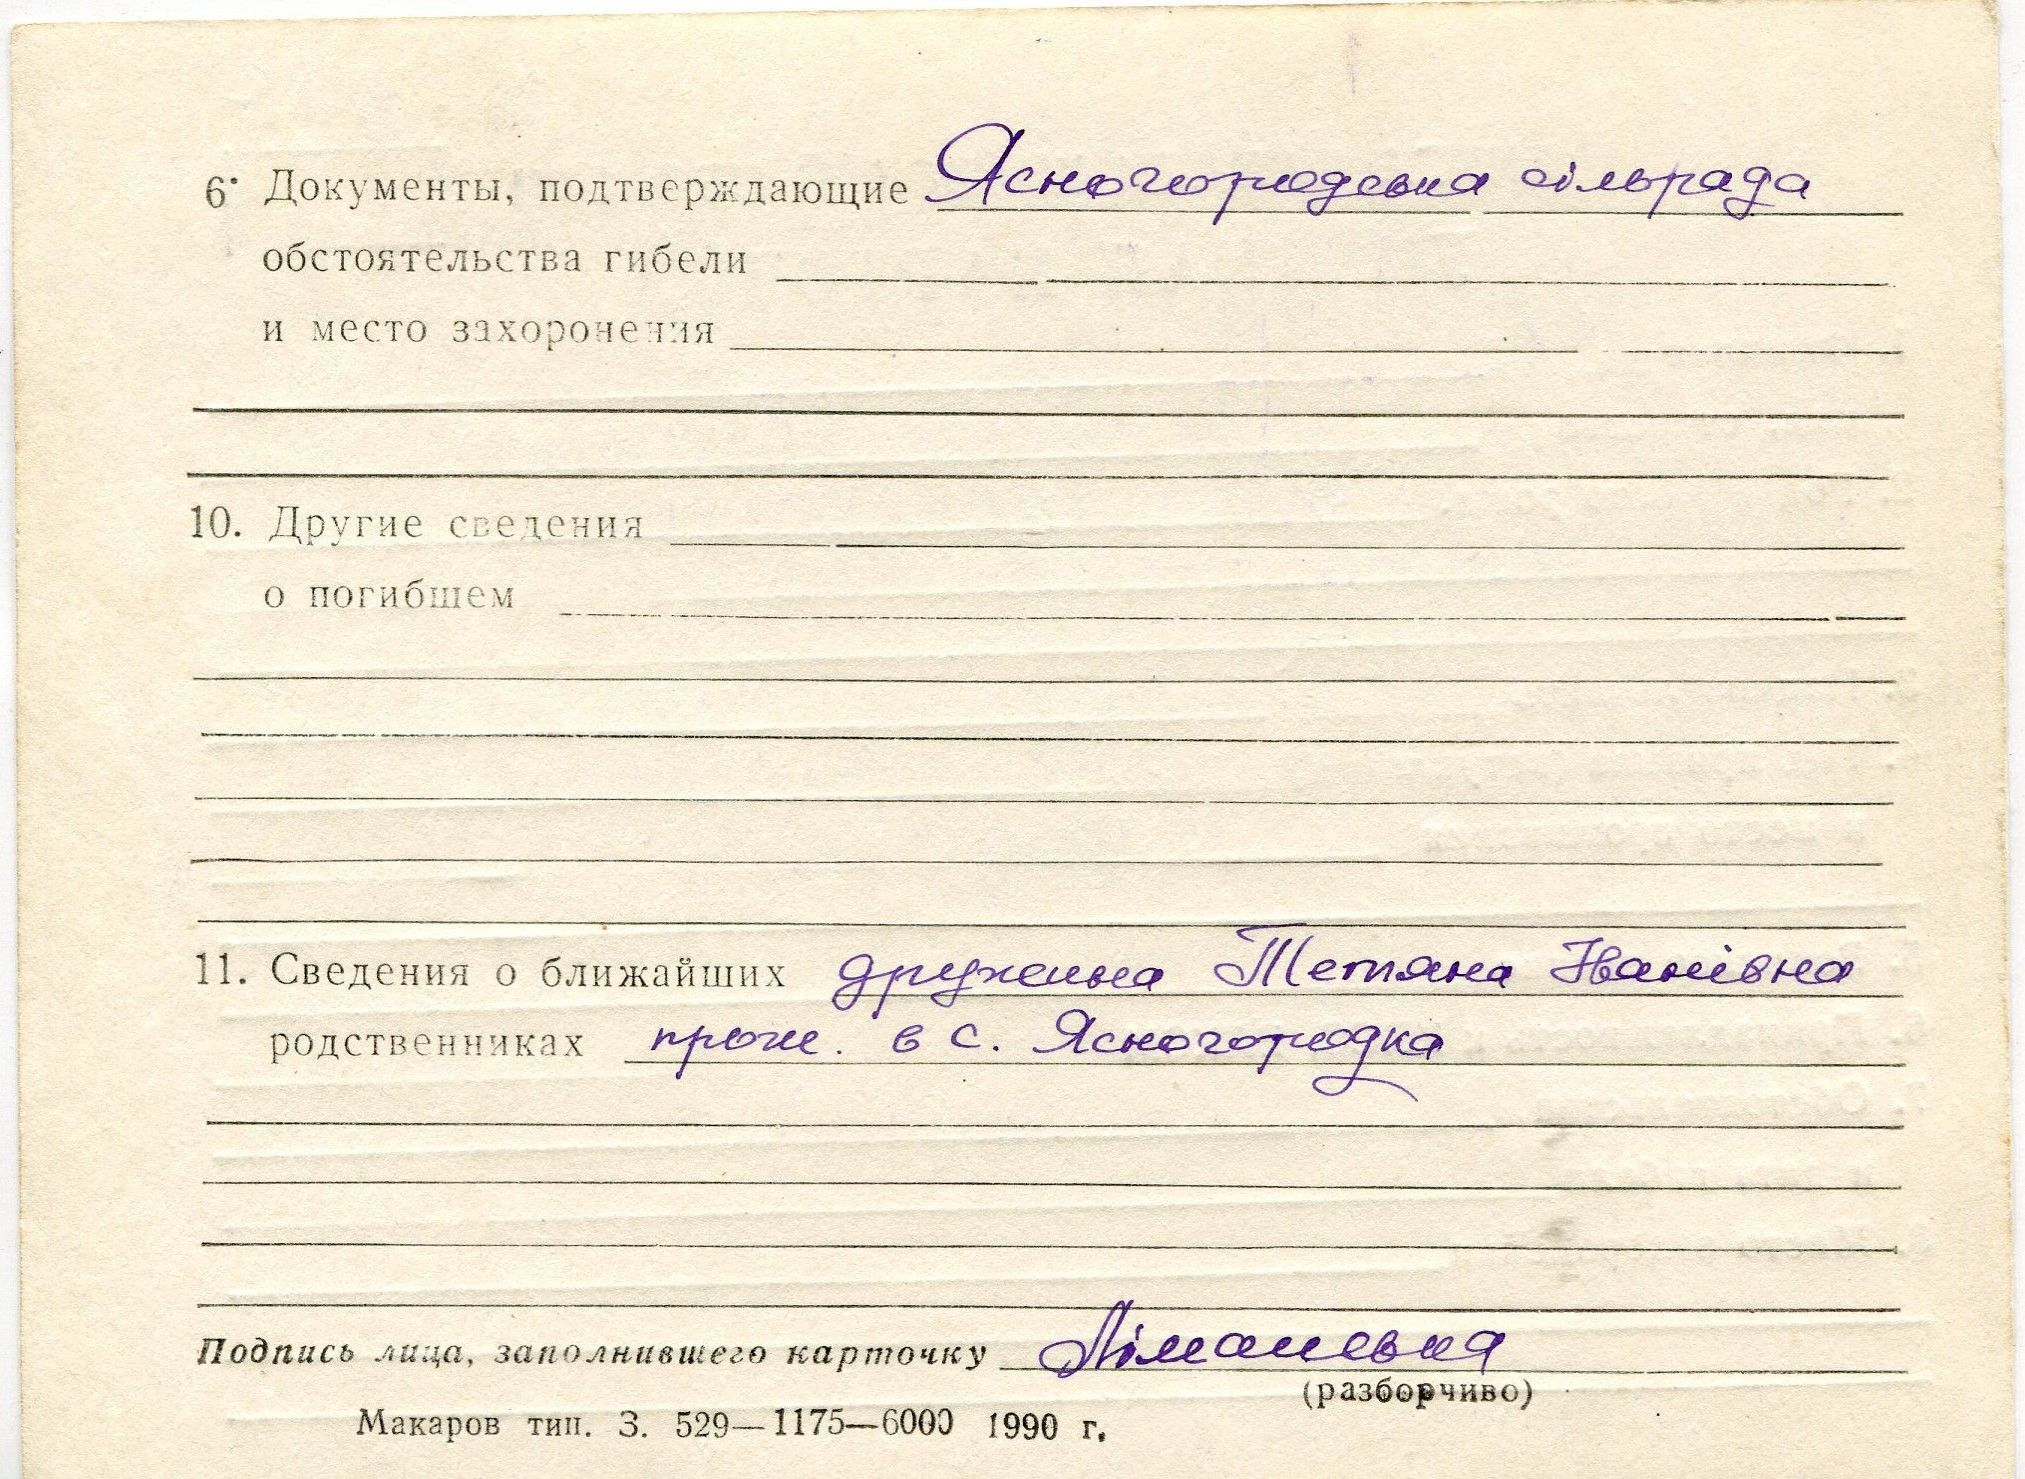 6. Документы, подтверждающие Ясногородська сільрада
обстоятельства гибели
и место захоронения
10. Другие сведения
о погибшем
11. Сведения о ближайших дружина Тетяна Іванівна
родственниках прож. в с. Ясногородка
Подпись лица, заполнившего карточку
(разборчиво)
Макаров тип. З. 529—1175—6000 1990 г.